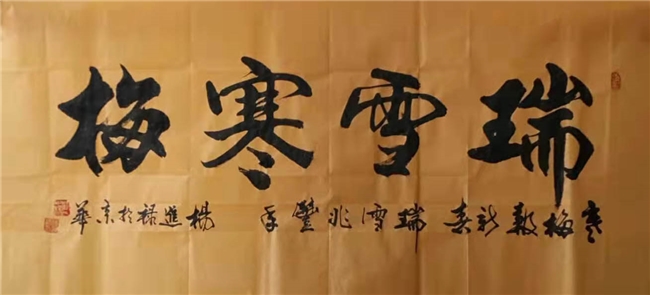 瑞雪寒梅
寒梅报新春 瑞雪兆豐年 楊進禄於京華